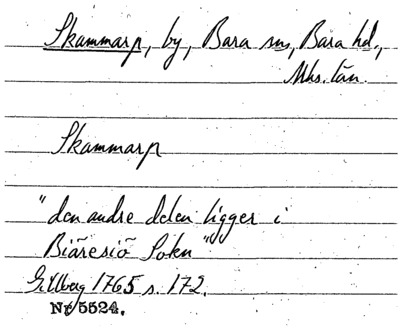 Skammarp, by, Bara sn, Bara hd.,
Mhs. län.
Skammarp
"den andre delen ligger i
Biäresiö Sokn"
Gillberg 1765 s. 172.
Nr 5524.